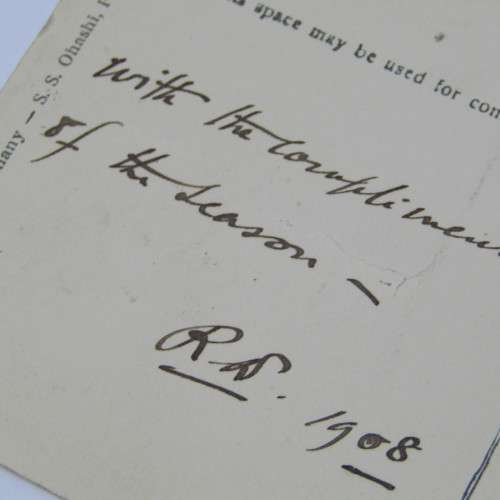 space may be used for com
many — S. S. Ohashi,
With the Complimen
of the season —
1908